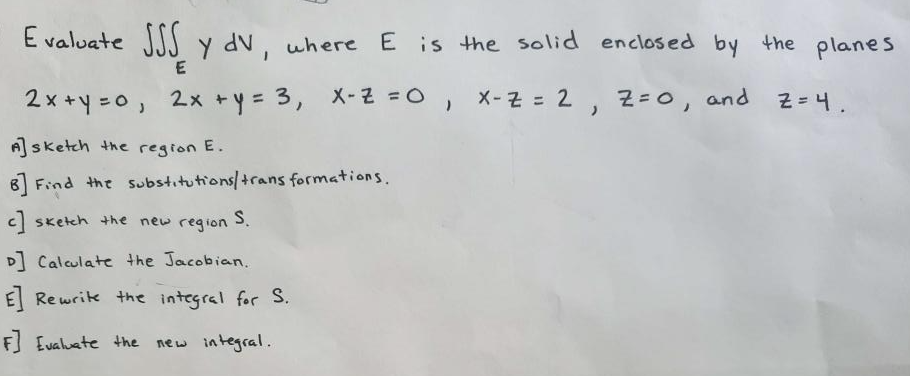 Evaluate ∭ y dV, where E is the solid enclosed by the planes
E
2x+y=0, 2x+y=3, x-z=0, x-z=2, z=0, and z=4.
A] sketch the region E.
B] Find the substitutions/transformations.
C] sketch the new region S.
D] Calculate the Jacobian.
E] Rewrite the integral for S.
F] Evaluate the new integral.